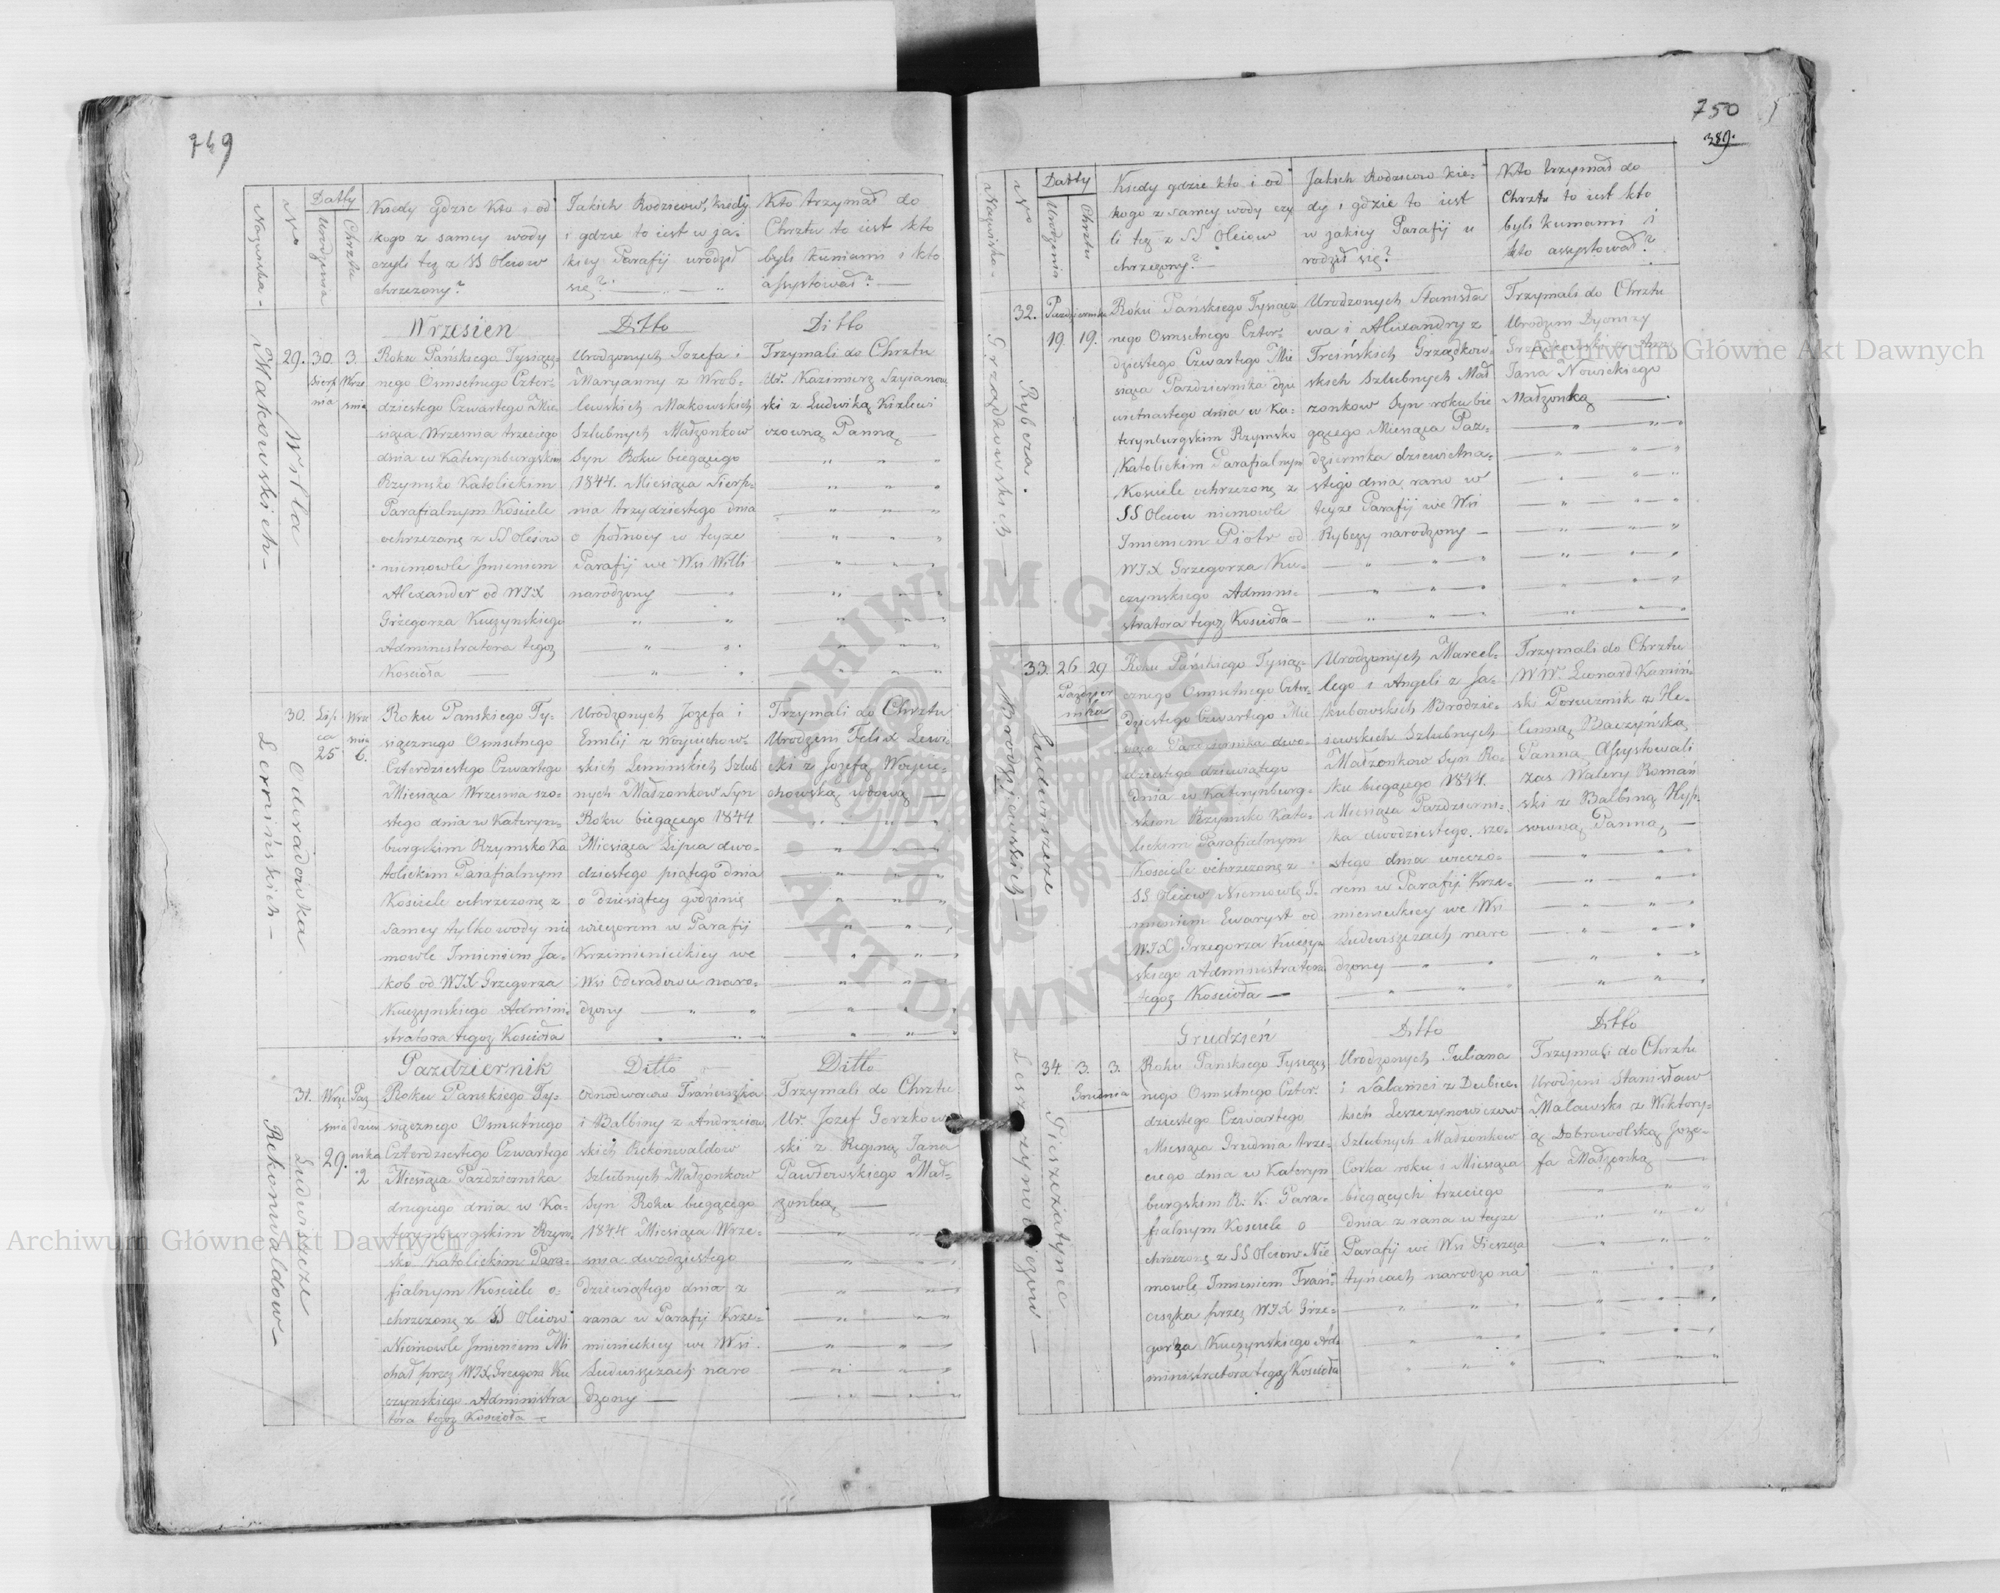 749
Nazwiska
No
Datty
Urodzenia
Chrztu
Kiedy gdzie Kto i od
kogo z samey wody
czyli tez z SS Oleiow
chrzczony?
Jakich Rodzicow, kiedy
i gdzie to iest w ja-
kiey Parafij urodził
się?
Kto trzymał do
Chrztu to iest kto
byli kumami i kto
assystował?
Wrzesien
Ditto
Ditto
Makowskich
Willa
29.
30.
Sierp
nia
3
Wrze
snia
Roku Pańskiego Tysiącz
nego Osmsetnego Czter-
dziestego Czwartego Mie-
siąca Wrzesnia trzeciego
dnia w Katerynburgskim
Rzymsko Katolickim
Parafialnym Kosciele
ochrzczone z SS Oleiow
niemowle Imieniem
Alexander od WJX
Grzegorza Kuczynskiego
Administratora tegoz
Kosciola
Urodzonych Jozefa i
Maryanny z Wrob-
lewskich Makowskich
Szlubnych Małzonkow
Syn Roku biegącego
1844. Miesiąca Sierp-
nia trzydziestego dnia
o połnocy w teyze
Parafij we Wsi Willi
narodzony
Trzymali do Chrztu
Ur. Kazimierz Szyianow
ski z Ludwiką Kizlewi
czowną Panną
Lemińskich
Oderadowka
30.
Lip
ca
25
Wrze
snia
6.
Roku Panskiego Ty-
siącznego Osmsetnego
Czterdziestego Czwartego
Miesiąca Wrzesnia szo-
stego dnia w Kateryn-
burgskim Rzymsko Ka
tolickim Parafialnym
Kosciele ochrzczone z
samey tylko wody nie
mowle Imieniem Ja-
kob od WJX Grzegorza
Kuczynskiego Admini-
stratora tegoz Kosciola
Urodzonych Jozefa i
Emilij z Woyciechow-
skich Leminskich Szlub
nych Małzonkow Syn
Roku biegącego 1844
Miesiąca Lipca dwo-
dziestego piątego dnia
o dziesiątey godzinie
wieczorem w Parafij
Krzemienieckiey we
Wsi Oderadowce naro-
dzony
Trzymali do Chrztu
Urodzeni Felix Lewi-
cki z Jozefą Woycie-
chowską wdową
Pazdziernik
Ditto
Ditto
Rekonwaldow
Ludwiszcze
31.
Wrze
snia
29.
Paz
dzier
nika
2
Roku Panskiego Ty-
siącznego Osmsetnego
Czterdziestego Czwartego
Miesiąca Pazdziernika
drugiego dnia w Ka-
terynburgskim Rzym-
sko Katolickim Para-
fialnym Kosciele o-
chrzczone z SS Oleiow
Niemowle Imieniem Mi
chał przez WJX Grzegorza Ku
czyńskiego Administra
tora tegoz Kosciola
Odnodworcow Franciszka
i Balbiny z Andrzeiow
skich Rekonwaldow
Szlubnych Małzonkow
Syn Roku biegącego
1844 Miesiąca Wrze-
snia dwodziestego
Dziewiątego dnia z
rana w Parafij Krze-
mienieckiey we Wsi
Ludwiszczach naro
dzony
Trzymali do Chrztu
Ur. Jozef Gorzkow
ski z Reginą Jana
Pawłowskiego Mał-
zonką
750
389.
Nazwiska
No
Datty
Urodzenia
Chrztu
Kiedy gdzie kto i od
kogo z samey wody czy
li tez z SS Oleiow
chrzczony?
Jakich Rodzicow kie-
dy i gdzie to iest
w jakiey Parafij u
rodził się?
Kto trzymał do
Chrztu to iest kto
byli kumami i
kto assystował?
Grządkowskich
Rybcza.
32.
Pazdziernika
19
19.
Roku Pańskiego Tysiącz
nego Osmsetnego Czter-
dziestego Czwartego Mie
siąca Pazdziernika dzie
wietnastego dnia w Ka-
terynburgskim Rzymsko
Katolickim Parafialnym
Kosciele ochrzczone z
SS Oleiow niemowle
Imieniem Piotr od
WJX Grzegorza Ku-
czyńskiego Admini-
stratora tegoz Kosciola
Urodzonych Stanisła
wa i Alexandry z
Tresińskich Grządkow-
skich Szlubnych Mał
zonkow Syn roku bie
gącego Miesiąca Paz-
dziernika dziewietna-
stego dnia, rano w
teyze Parafij we Wsi
Rybczy narodzony
Trzymali do Chrztu
Urodzeni Dyonizy
Jana Nowickiego
Małzonką
Mrodzeiowskich
Ludwiszcze
33.
26
29
Pazdzier
nika
Roku Pańskiego Tysiąc-
cznego Osmsetnego Czter-
dziestego Czwartego Mie
siąca Pazdziernika dwo-
dziestego dziewiątego
dnia w Katerynburg-
skim Rzymsko Kato-
lickim Parafialnym
Kosciele ochrzczone z
SS Oleiow Niemowle I-
mieniem Ewaryst od
WJX Grzegorza Kuczyn
skiego Administratora
tegoz Kosciola
Urodzonych Marcel-
lego i Angeli z Ja-
kubowskich Brodzie-
iowskich Szlubnych
Małzonkow Syn Ro-
ku biegącego 1844.
Miesiąca Pazdzierni-
ka dwodziestego szo-
stego dnia wieczo-
rem w Parafij Krze-
mienieckiey we Wsi
Ludwiszczach naro
dzony
Trzymali do Chrztu
WW. Leonard Kamiń
ski Porucznik z He-
lenną Baczyńską
Panną, Assystowali
zas Walery Romań
ski z Balbiną Hyp-
Panną
Grudzień
Ditto
Ditto
Leszczynowiczow
Pieszczatynce
34.
3.
3.
Grudnia
Roku Pańskiego Tysiącz
nego Osmsetnego Czter-
dziestego Czwartego
Miesiąca Grudnia trze-
ciego dnia w Kateryn
burgskim R. K. Para-
fialnym Kosciele o
chrzczone z SS Oleiow Nie
mowle Imieniem Fran-
ciszka przez WJX Grze-
gorza Kuczynskiego Ad
ministratora tegoz Kosciola
Urodzonych Juliana
i Salomei z Dubiec-
kich Leszczynowiczow
Szlubnych Małzonkow
Corka roku i Miesiąca
biegących trzeciego
dnia z rana w teyze
Parafij we Wsi Pieszcza
tyńcach narodzona
Trzymali do Chrztu
Urodzeni Stanisław
Malawski z Wiktory-
ą Dobrowolską Joze-
fa Małzonką
Archiwum Główne Akt Dawnych
Archiwum Główne Akt Dawnych
ARCHIWUM GŁÓWNE
AKT DAWNYCH